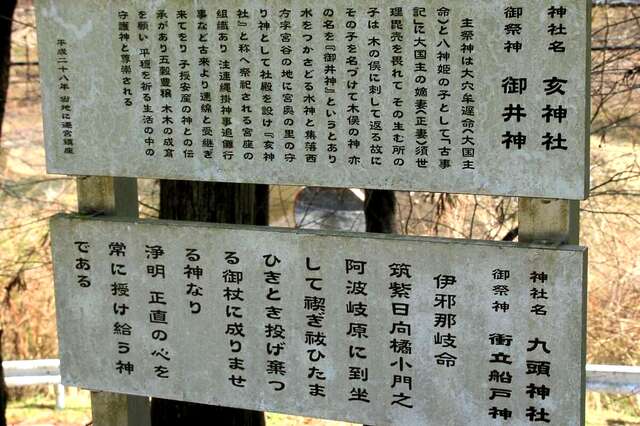 神社名 亥神社
御祭神 御井神
主祭神は大穴牟遅命(大国主
命)と八神姫の子として「古事
記」に大国主の嫡妻(正妻)須世
理毘売を畏れて その生む所の
子は 木の俣に刺して返る故に
その子を名づけて木俣の神 亦
の名を『御井神』というとあり
水をつかさどる水神と集落西
方字宮谷の地に宮奥の里の守
り神として社殿を設け『亥神
社』と称へ祭祀される宮座の
組織あり 注連縄掛神事追儺行
事など古来より連綿と受継ぎ
来ており 子授安産の神との伝
承があり五穀豊穣 木木の成育
を願い 平穏を祈る生活の中の
守護神と尊崇される
平成二十八年 当地に遷宮鎮座
神社名 九頭神社
御祭神 衝立船戸神
伊邪那岐命
筑紫日向橘小門之
阿波岐原に到坐
して禊ぎ祓ひたま
ひきとき投げ棄つ
る御杖に成りませ
る神なり
浄明 正直の心を
常に授け給う神
である